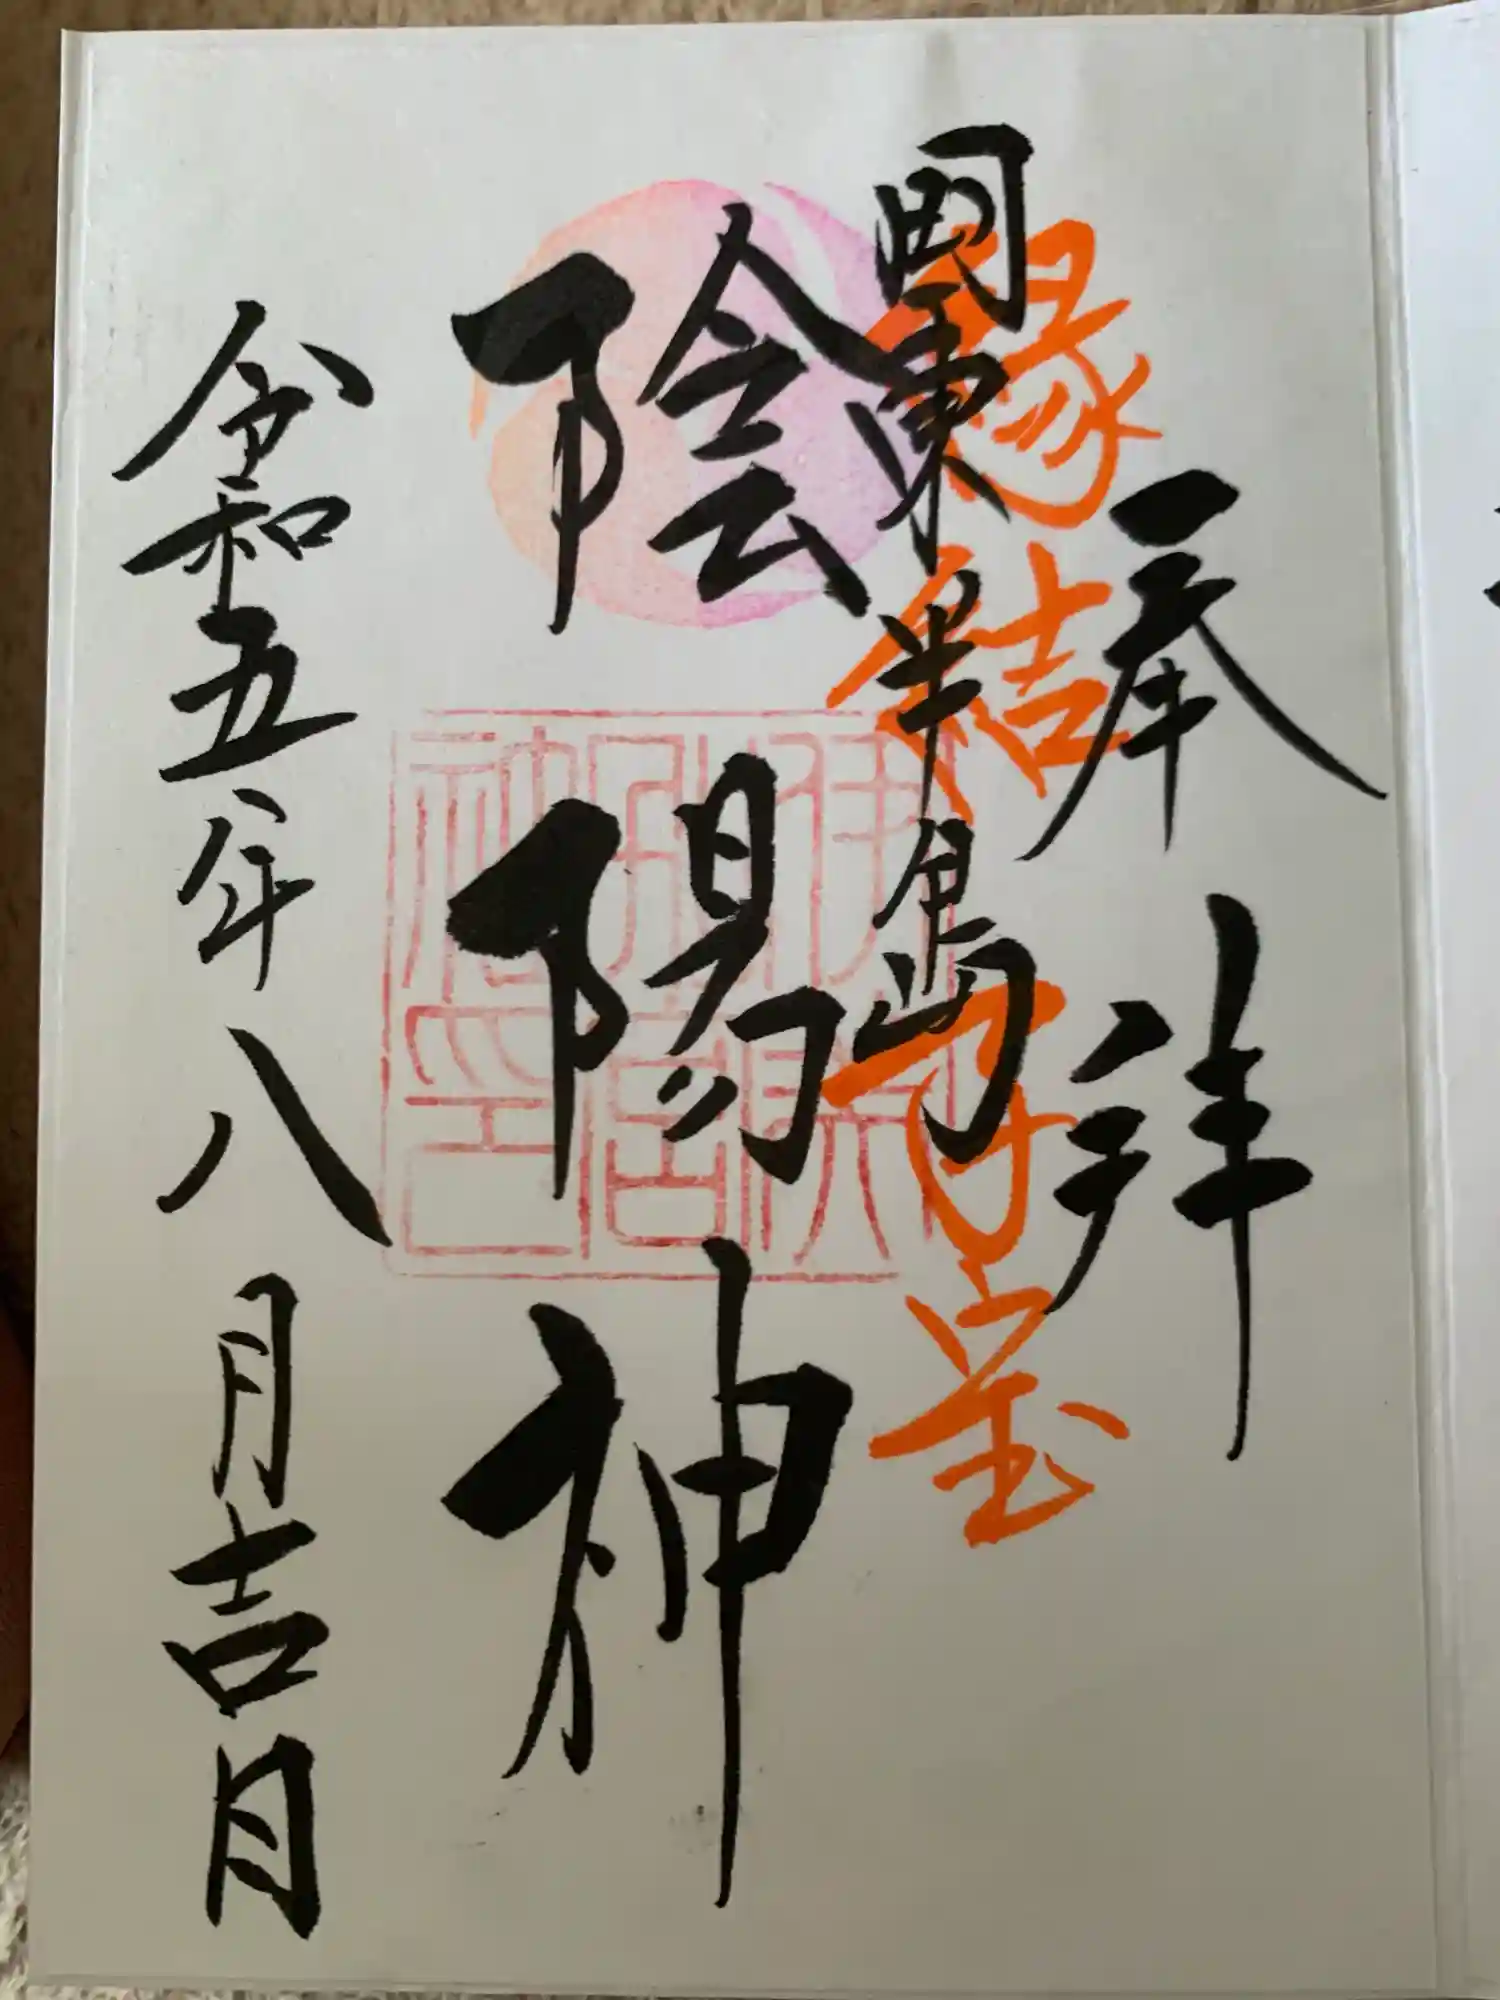 奉拝
縁結 子宝
國東半島
陰陽神
令和五年八月吉月